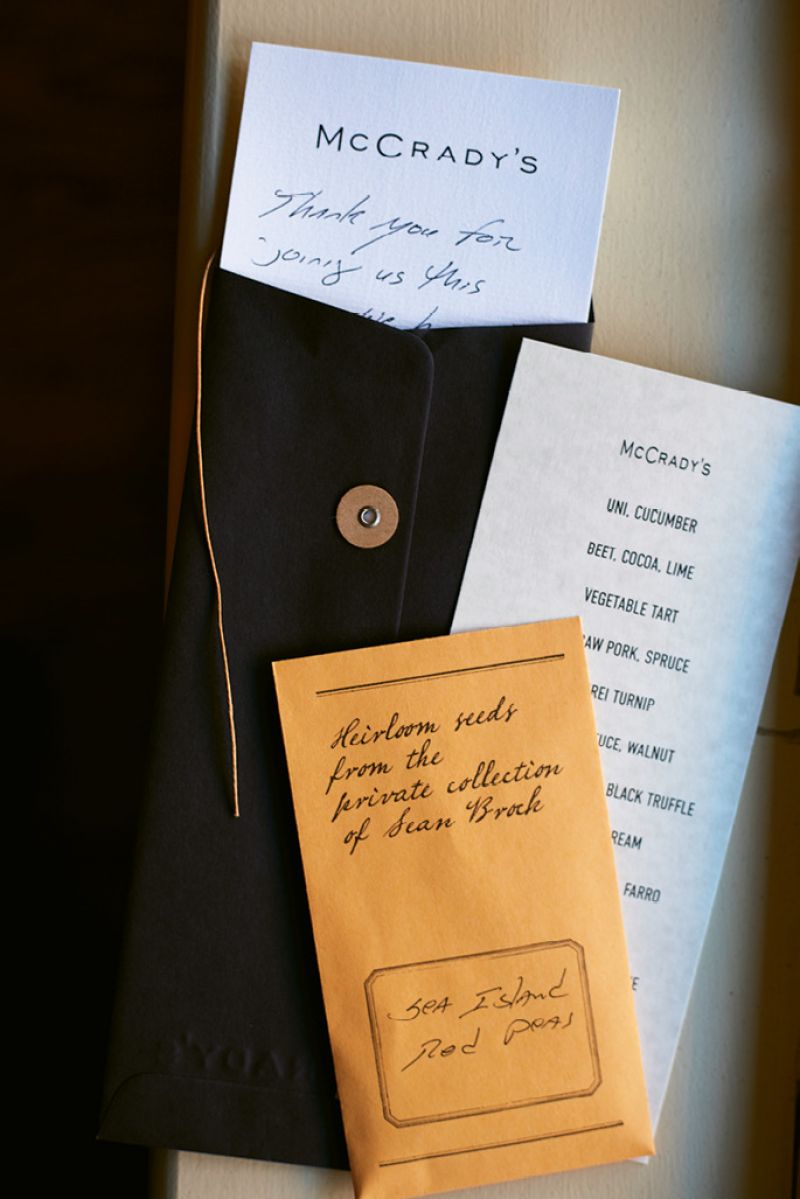 McCrady's
Thank you for
joining us this
McCrady's
UNI, CUCUMBER
BEET, COCOA, LIME
VEGETABLE TART
PORK, SPRUCE
TURNIP
WALNUT
BLACK TRUFFLE
FARRO
Heirloom seeds
from the
private collection
of Sean Brock
Sea Island
Red Peas